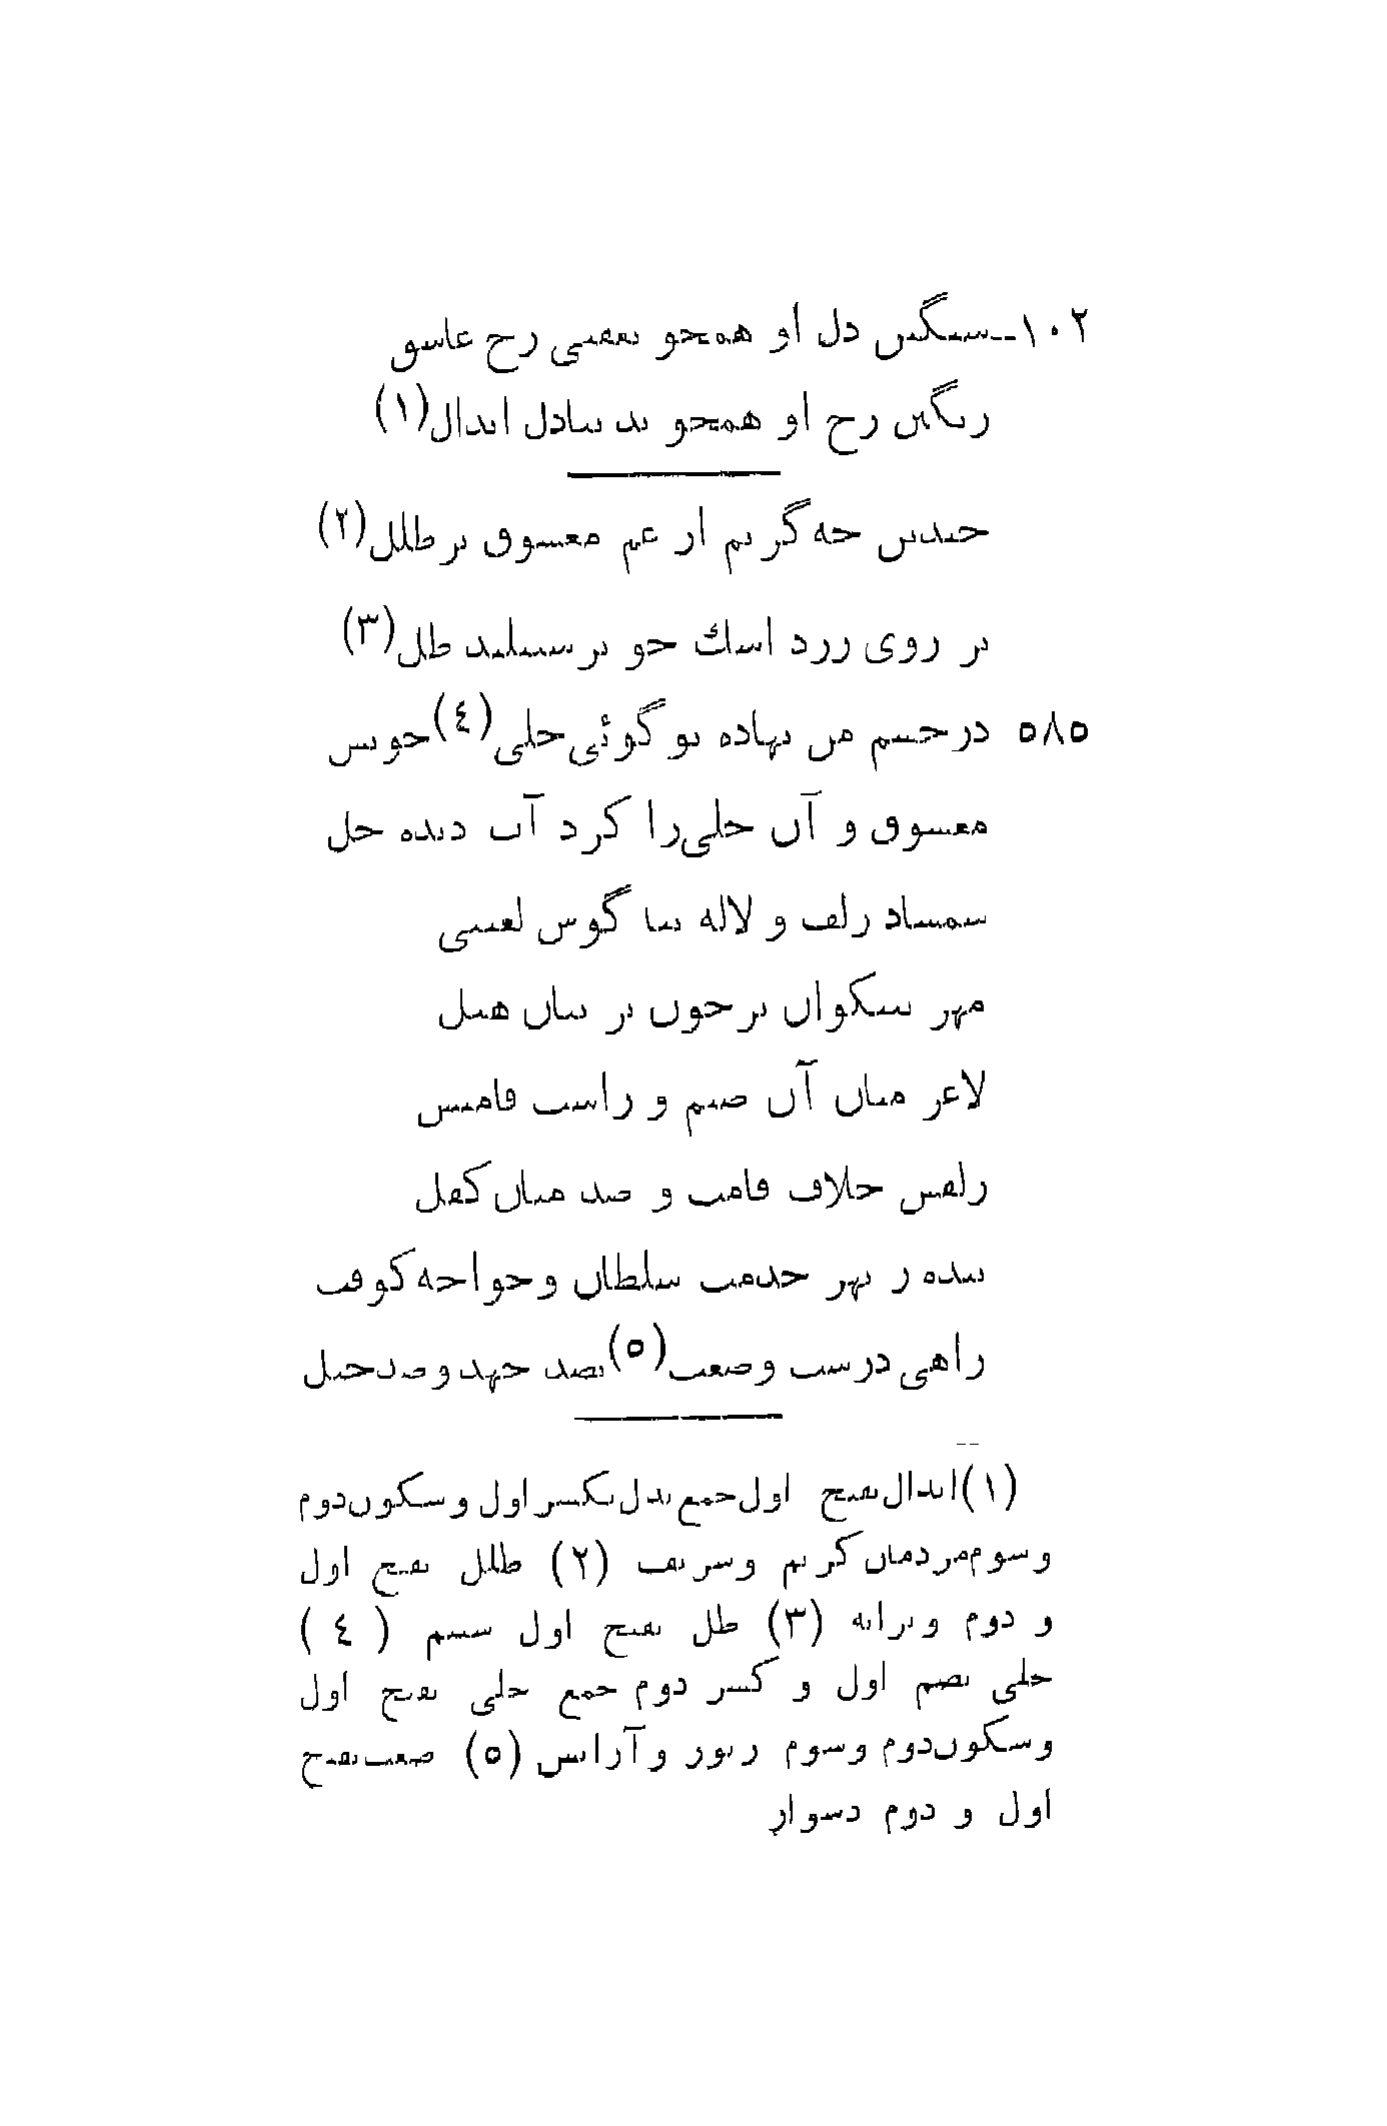 ۱۰۲ــسنگین دل او همچو بعقبی رخ عاشق
رنگین رخ او همچو بدنیا دل ابدال(۱)
چندین چه گریم از غم معشوق بر طلل(۲)
بر روی زرد اشك چو بر شنبلید طل(۳)
۵۸۵ در چشم من نهاده تو گوئی حلی(٤) خویش
معشوق و آن حلی را کرد آب دیده حل
شمشاد زلف و لاله بنا گوش لعبتی
مهر نیکوان بر چون بر بتان هبل
لاغر میان آن صنم و راست قامتش
زلفش خلاف قامت و ضد میان کفل
بنده ز بهر خدمت سلطان و خواجه کوفت
راهی درشت و صعب(۵) بصد جهد و صد حیل
(۱) ابدال بفتح اول جمع بدل بکسر اول و سکون دوم
و سوم مردمان کریم و شریف (۲) طلل بفتح اول
و دوم ویرانه (۳) طل بفتح اول شبنم (٤)
حلی بضم اول و کسر دوم جمع حلی بفتح اول
و سکون دوم و سوم زیور و آرایش (۵) صعب بفتح
اول و دوم دشوار